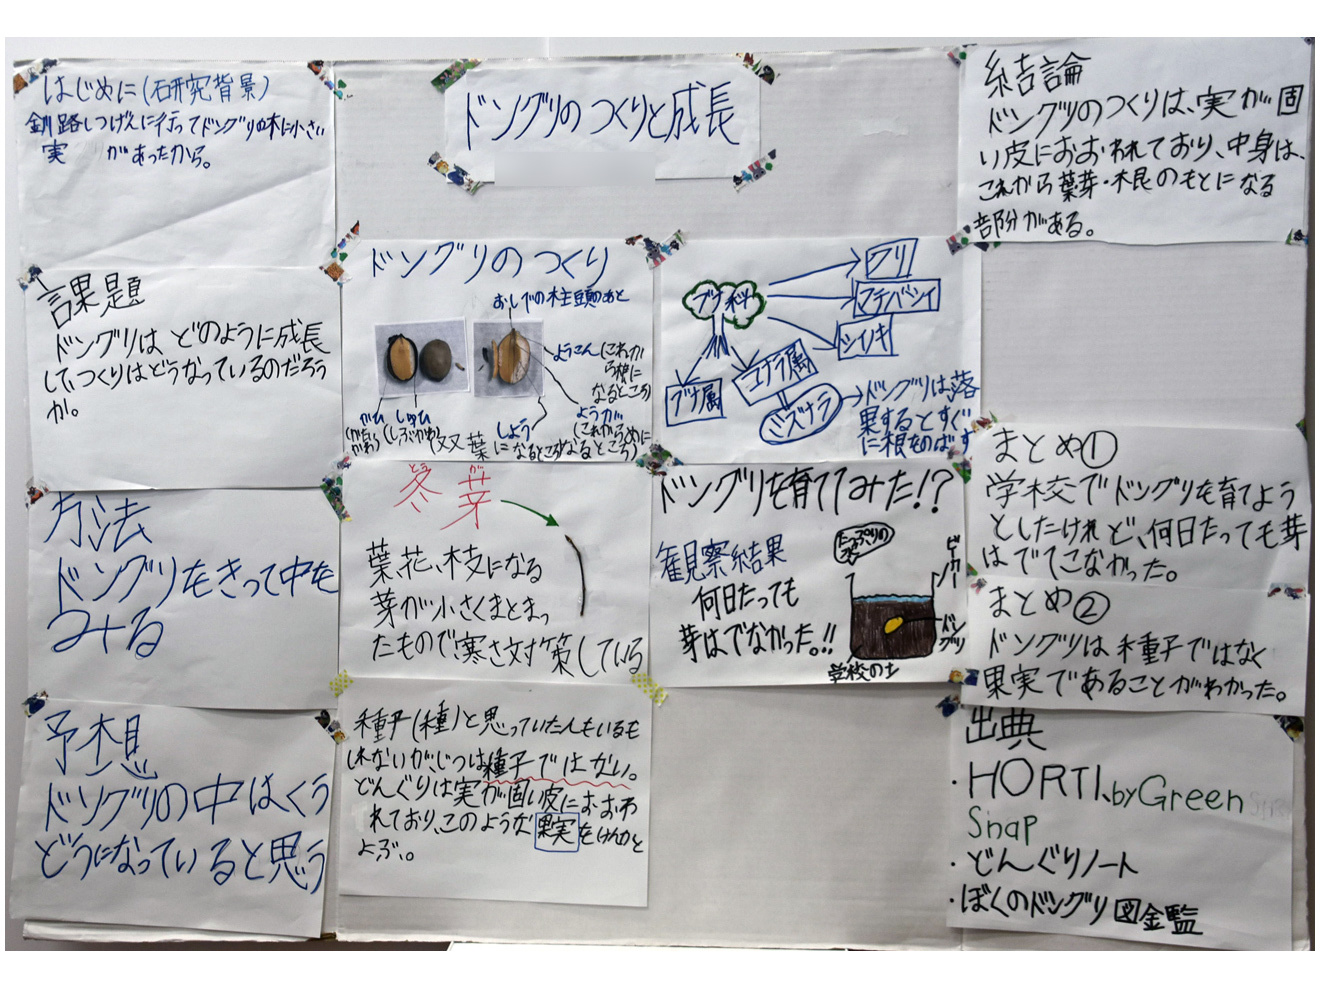 ドングリのつくりと成長
はじめに(研究背景)
釧路しつげんに行ってドングリの木に小さい
実 があったから。
課題
ドングリは どのように成長
して、つくりはどうなっているのだろう
か。
方法
ドングリをきって中を
みる
予想
ドングリの中はくう
どうになっていると思う
ドングリのつくり
めしべの柱頭のあと
ようこん(これか
ら根に
なるところ)
ようが
(これからめに
なるところ)
しよう
(双葉になるところ)
がひ
(がわ)
しゅひ
(しぶかわ)
ブナ科
クリ
マテバシイ
シイノキ
ブナ属
コナラ属
ミズナラ
ドングリは落
果するとすぐ
に根をのばす
とう が
冬芽
葉、花、枝になる
芽が小さくまとまっ
たもので寒さ対策している
ドングリを育ててみた!?
観察結果
何日たっても
芽はでなかった。!!
たっぷりの
水
ビーカー
ドングリ
学校の土
種子(種)と思っていた人もいるも
しれないが、じつは種子ではない。
どんぐりは実が固い皮におおわ
れており、このような果実をけんかと
よぶ。
結論
ドングリのつくりは、実が固
い皮におおわれており、中身は、
これから葉芽・根のもとになる
部分がある。
まとめ①
学校でドングリを育てよう
としたけれど、何日たっても芽
はでてこなかった。
まとめ②
ドングリは種子ではなく
果実であることがわかった。
出典
・HORTI、by Green
Snap
・どんぐりノート
・ぼくのドングリ図金監